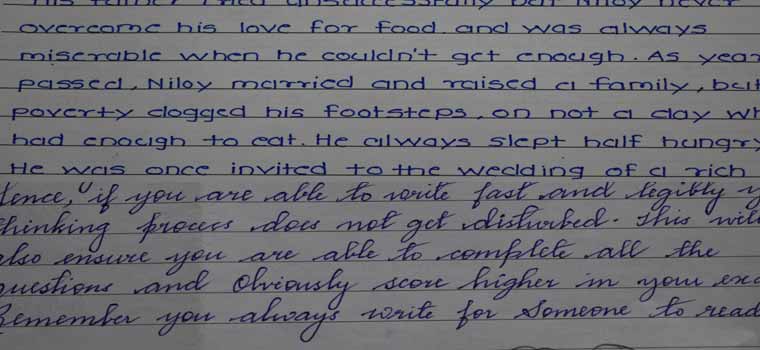 overcome his love for food and was always
miserable when he couldn't get enough. As year
passed, Niloy married and raised a family, but
poverty dogged his footsteps, on not a day wh
had enough to eat. He always slept half hungry
He was once invited to the wedding of a rich
tence, if you are able to write fast and legibly y
thinking process does not get disturbed. This will
also ensure you are able to complete all the
questions and Obviously score higher in your exa
Remember you always write for Someone to read